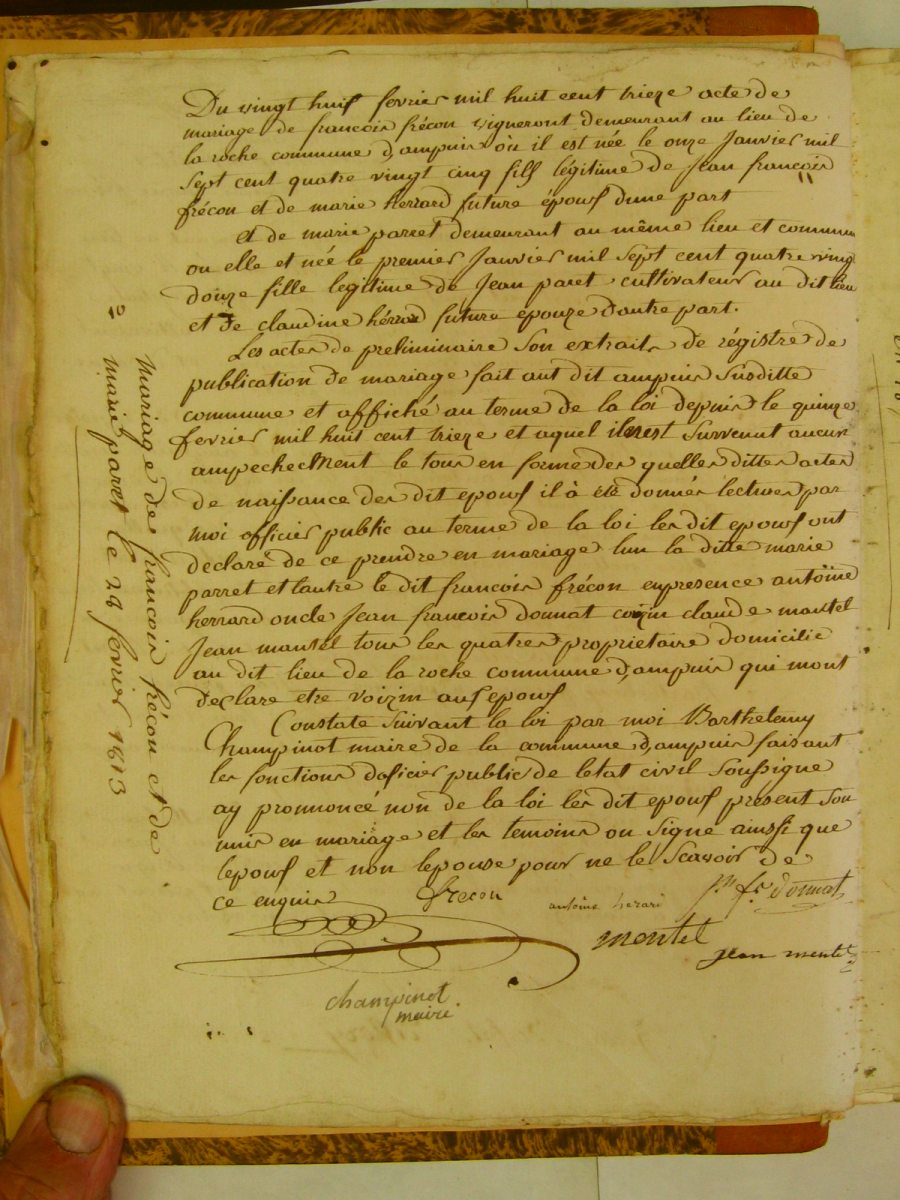 Du vingt huif fevrier mil huit cent trieze acte de
mariage de francois frécon vigneront demeurant au lieu de
la roche commune d'ampuis où il est née le onze Janvier mil
Sept cent quatre vingt cinq fils legitime de Jean françois
frécon et de marie herrard future épouse dune part
et de marie parret demeurant au même lieu et commune
ou elle et née le premier Janvier mil Sept cent quatre vingt
douze fille legitime de Jean paret cultivateur au dit lieu
et De claudine hérrard future epouze d'autre part.
Les actes de preliminaire Son extraits de régistre de
publication de mariage fait aut dit ampuis Susditte
commune et affiché au terme de la loi depuis le quinze
fevrier mil huit cent trieze et aquel il n'est Survenut aucun
ampechecMent le tous en forme des quelles dittes actes
de naissance des dit epous il à été donnés lectures par
moi officier public au terme de la loi les dit epous ont
declaré de ce prendre en mariage lun la ditte marie
parret et lautre le dit francois frécon enpresence antoine
herrard oncle Jean francois donnat couzin claude mantel
Jean mantel tous les quatres proprietaire domicilie
au dit lieu de la roche commune d'ampuis qui mont
declare etre voizin aus epous
Constate Suivant la loi par moi Barthelemy
Champinot maire de la commune d'ampuis faisant
les fonctions doficier public de letat civil Soussigne
ay promoncé non de la loi les dit epous present Son
unis en mariage et les temoins on Signe ainssi que
lepous et non lepouse pour ne le Scavoir de
ce enquis
frecon
antoine herard
jn fs donnat
mentel
jean mentel
champinot
maire
2
mariage de francois frécon et de
marie paret le 28 fevrier 1813